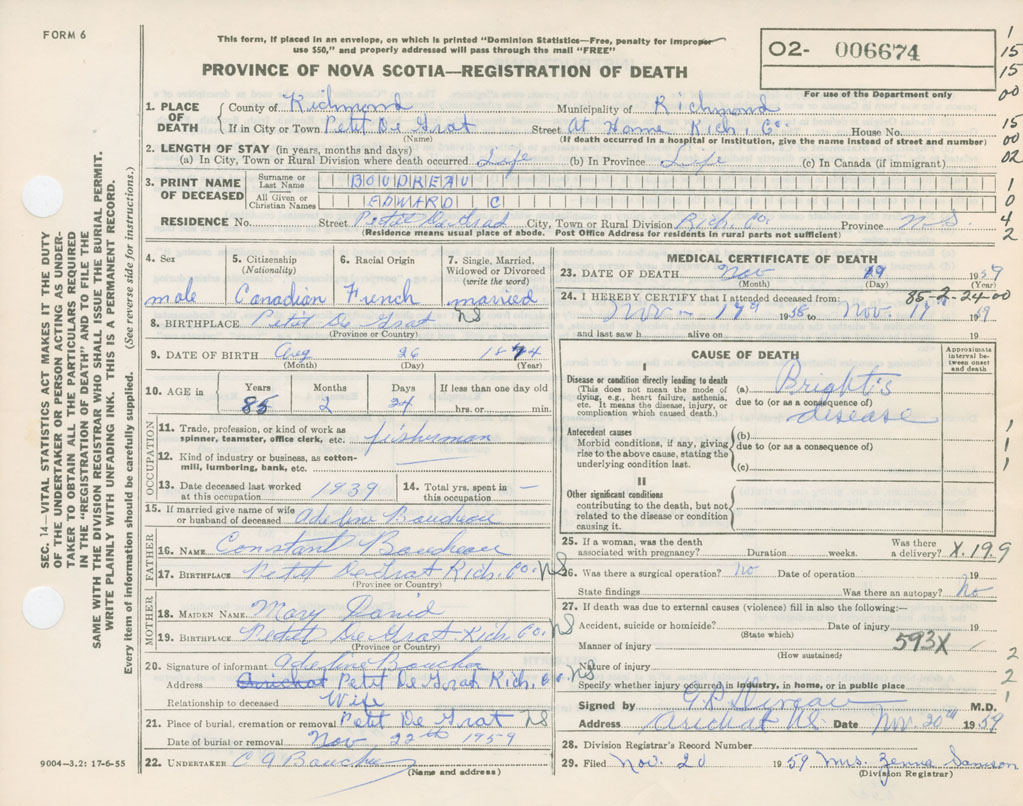 FORM 6
This form, if placed in an envelope, on which is printed "Dominion Statistics—Free, penalty for improper
use $50," and properly addressed will pass through the mail "FREE"
PROVINCE OF NOVA SCOTIA—REGISTRATION OF DEATH
O2- 006674
For use of the Department only
1
15
15
00
15
00
02
1
0
4
2
1
1
1
2
2
1
SEC. 14—VITAL STATISTICS ACT MAKES IT THE DUTY
OF THE UNDERTAKER OR PERSON ACTING AS UNDER-
TAKER TO OBTAIN ALL THE PARTICULARS REQUIRED
IN THE "REGISTRATION OF DEATH" AND TO FILE THE
SAME WITH THE DIVISION REGISTRAR WHO SHALL ISSUE THE BURIAL PERMIT.
WRITE PLAINLY WITH UNFADING INK. THIS IS A PERMANENT RECORD.
Every item of information should be carefully supplied. (See reverse side for instructions.)
1. PLACE OF DEATH County of Richmond Municipality of Richmond
If in City or Town Petit De Grat Street At Home Rich. Co. House No.
(Name) (If death occurred in a hospital or institution, give the name instead of street and number)
2. LENGTH OF STAY (in years, months and days)
(a) In City, Town or Rural Division where death occurred Life (b) In Province Life (c) In Canada (if immigrant)
3. PRINT NAME OF DECEASED Surname or Last Name BOUDREAU
All Given or Christian Names EDWARD C
RESIDENCE No. Street Petit De Grat City, Town or Rural Division Rich. Co. Province N S
(Residence means usual place of abode. Post Office Address for residents in rural parts not sufficient)
4. Sex 5. Citizenship (Nationality) 6. Racial Origin 7. Single, Married, Widowed or Divorced (write the word)
male Canadian French married
8. BIRTHPLACE Petit De Grat NS
(Province or Country)
9. DATE OF BIRTH Aug 26 1874
(Month) (Day) (Year)
10. AGE in Years Months Days If less than one day old
85 2 24 hrs. or min.
OCCUPATION
11. Trade, profession, or kind of work as spinner, teamster, office clerk, etc. fisherman
12. Kind of industry or business, as cotton-mill, lumbering, bank, etc.
13. Date deceased last worked at this occupation 1939 14. Total yrs. spent in this occupation —
15. If married give name of wife or husband of deceased Adeline Boudreau
FATHER
16. NAME Constant Boudreau
17. BIRTHPLACE Petit De Grat Rich. Co. NS
(Province or Country)
MOTHER
18. MAIDEN NAME Mary David
19. BIRTHPLACE Petit De Grat Rich. Co. NS
(Province or Country)
20. Signature of informant Adeline
Address Arichat Petit De Grat Rich. Co NS
Relationship to deceased Wife
21. Place of burial, cremation or removal Petit De Grat NS
Date of burial or removal Nov 22th 1959
22. UNDERTAKER C A
(Name and address)
9004—3.2: 17-6-55
MEDICAL CERTIFICATE OF DEATH
23. DATE OF DEATH Nov 19 1959
(Month) (Day) (Year)
85-2-24-00
24. I HEREBY CERTIFY that I attended deceased from:
Nov - 19 1958 to Nov. 19 1959
and last saw h alive on 19
CAUSE OF DEATH
Approximate interval between onset and death
I
Disease or condition directly leading to death
(This does not mean the mode of dying, e.g., heart failure, asthenia, etc. It means the disease, injury, or complication which caused death.)
(a) Bright's disease
due to (or as a consequence of)
Antecedent causes
Morbid conditions, if any, giving rise to the above cause, stating the underlying condition last.
(b)
due to (or as a consequence of)
(c)
II
Other significant conditions
contributing to the death, but not related to the disease or condition causing it.
25. If a woman, was the death associated with pregnancy? Duration weeks. Was there a delivery? X.19.9
26. Was there a surgical operation? No Date of operation 19
State findings Was there an autopsy? No
27. If death was due to external causes (violence) fill in also the following:—
Accident, suicide or homicide? Date of injury 19
(State which)
Manner of injury 593X
(How sustained)
Nature of injury
Specify whether injury occurred in industry, in home, or in public place
Signed by M.D.
Address Arichat NS Date Nov. 20th 1959
28. Division Registrar's Record Number
29. Filed Nov. 20 1959 Mrs. Zenna Samson
(Division Registrar)